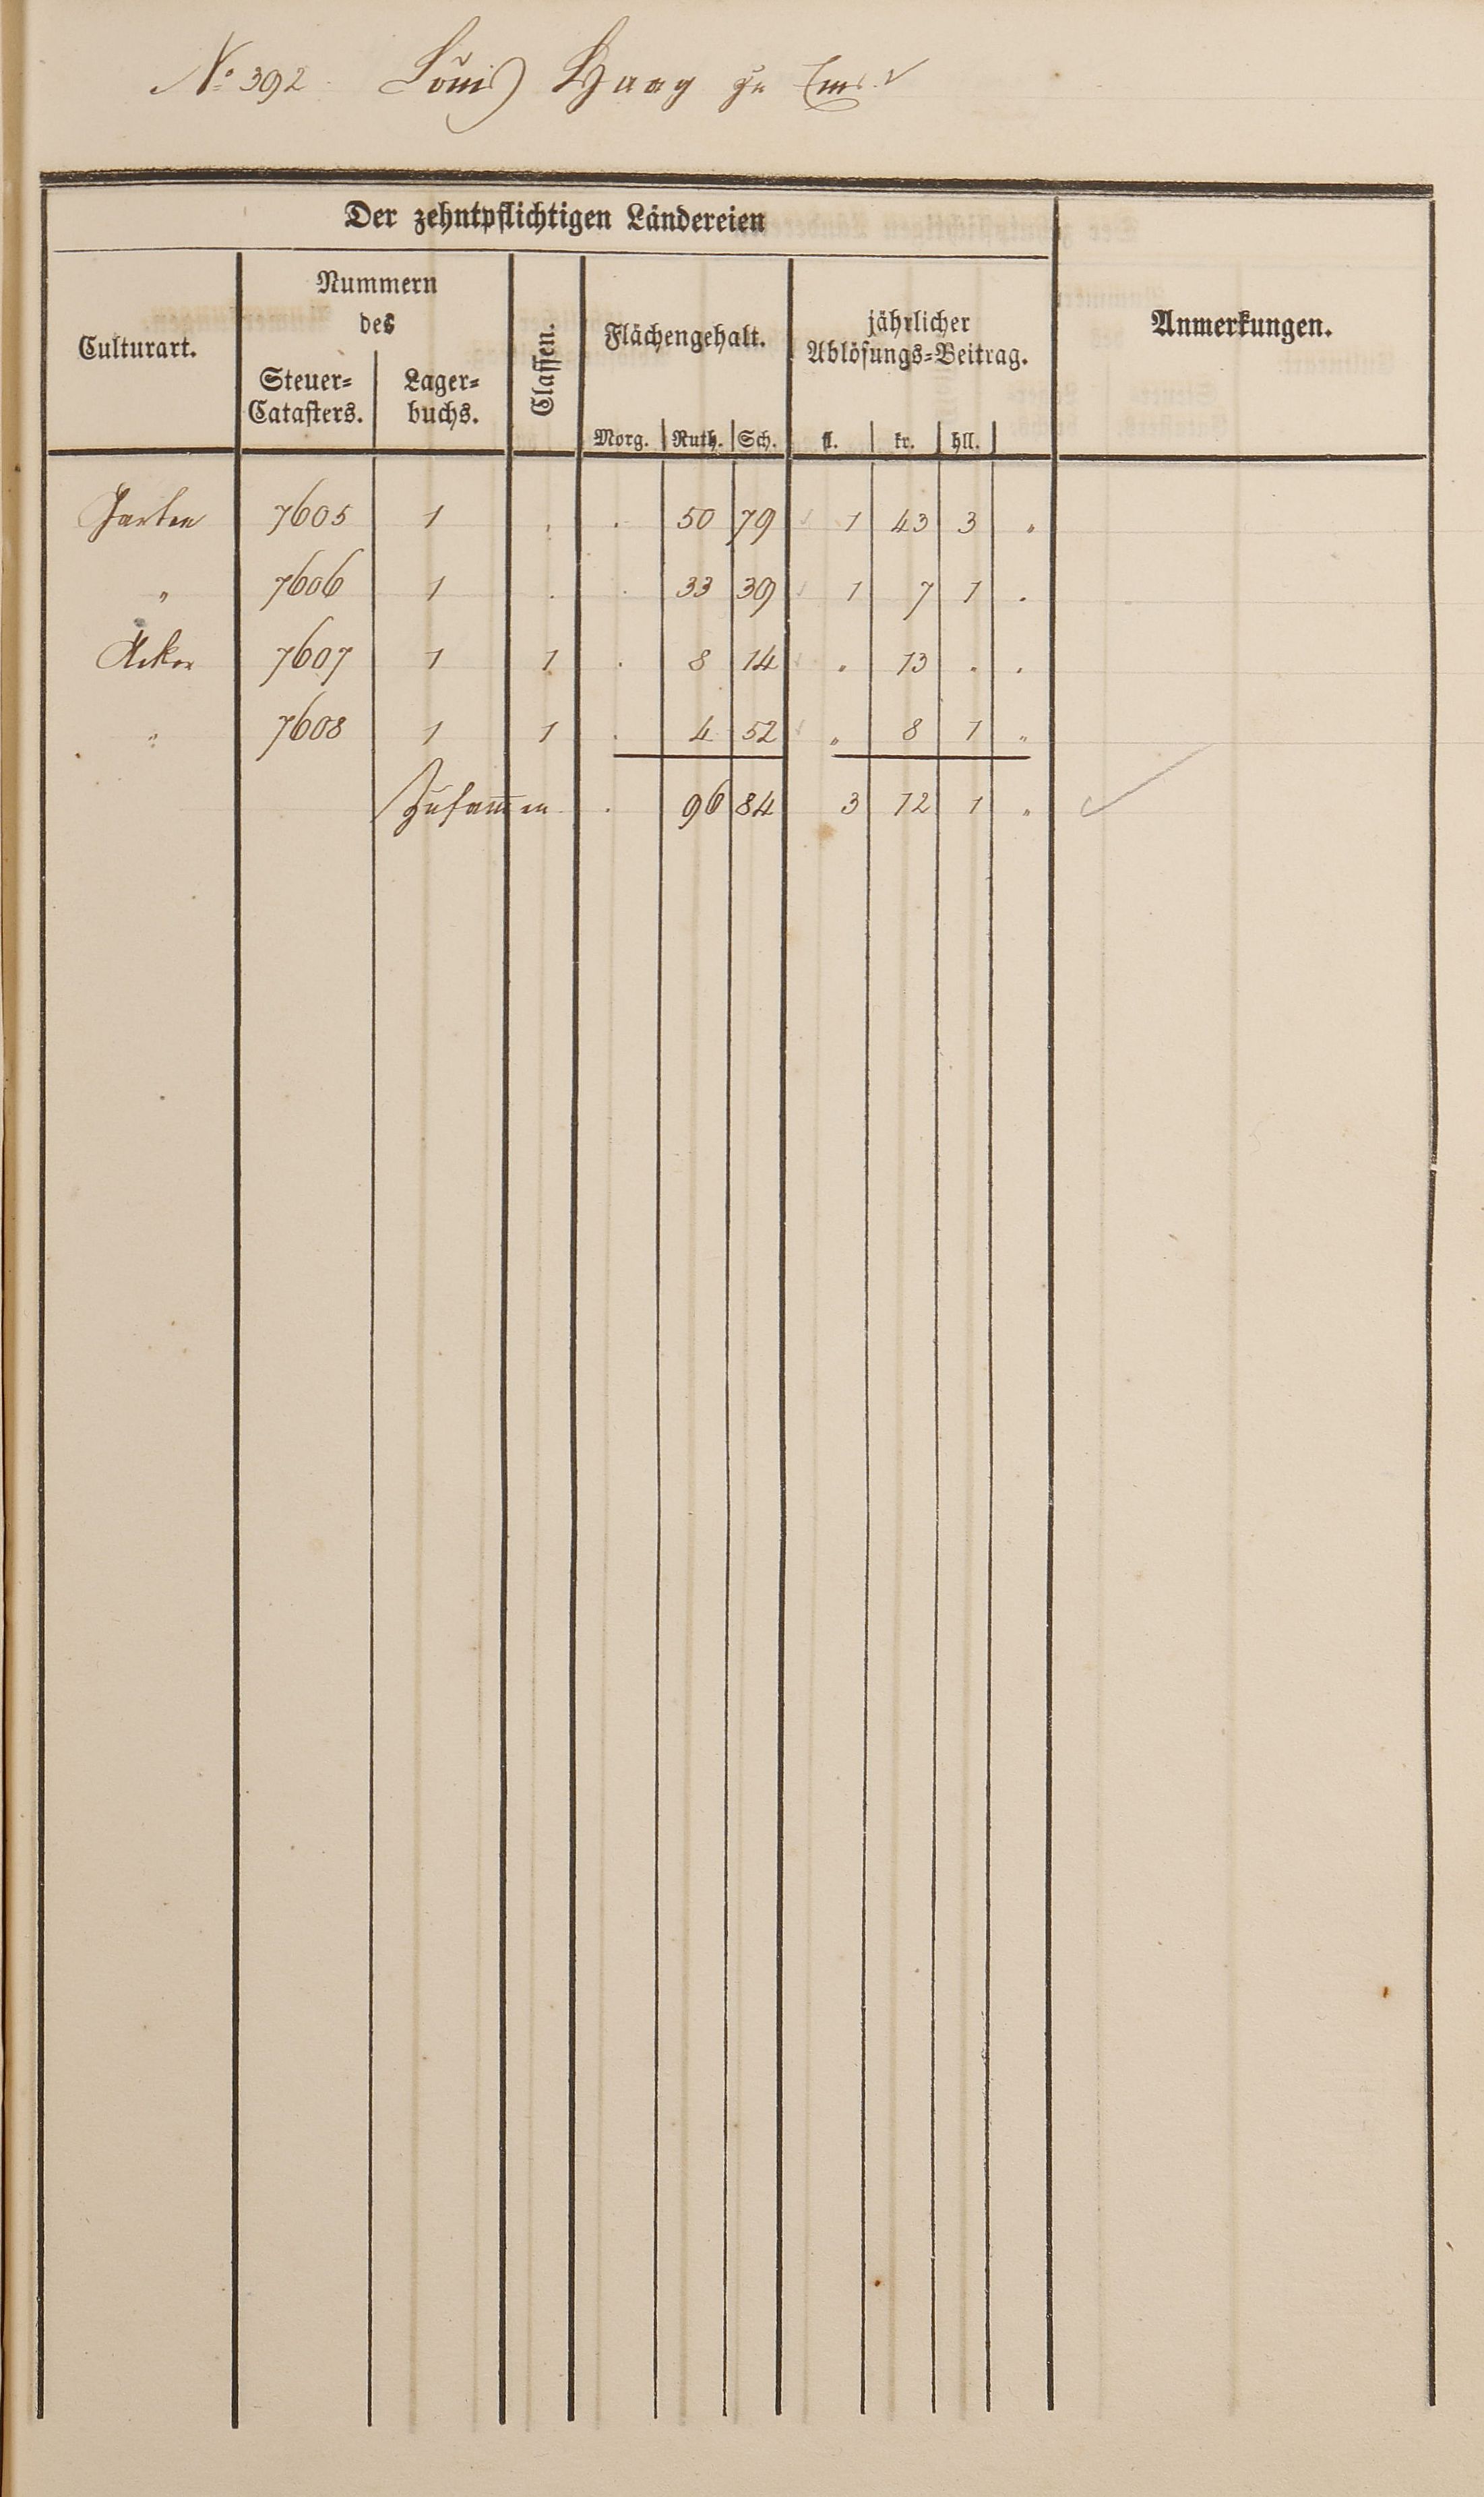 No. 392. Louis Haag zu Ems.
Der zehntpflichtigen Ländereien
Culturart.
Nummern
des
Steuer=
Catasters.
Lager=
buchs.
Classen.
Flächengehalt.
Morg. Ruth. Sch.
jährlicher
Ablösungs=Beitrag.
fl. kr. hll.
Anmerkungen.
Garten 7605 1 . . 50 79 1 43 3 .
" 7606 1 . . 33 39 1 7 1 .
Acker 7607 1 1 . 8 14 . 13 . .
" 7608 1 1 . 4 52 " 8 1 "
Zusammen . 96 84 3 12 1 "